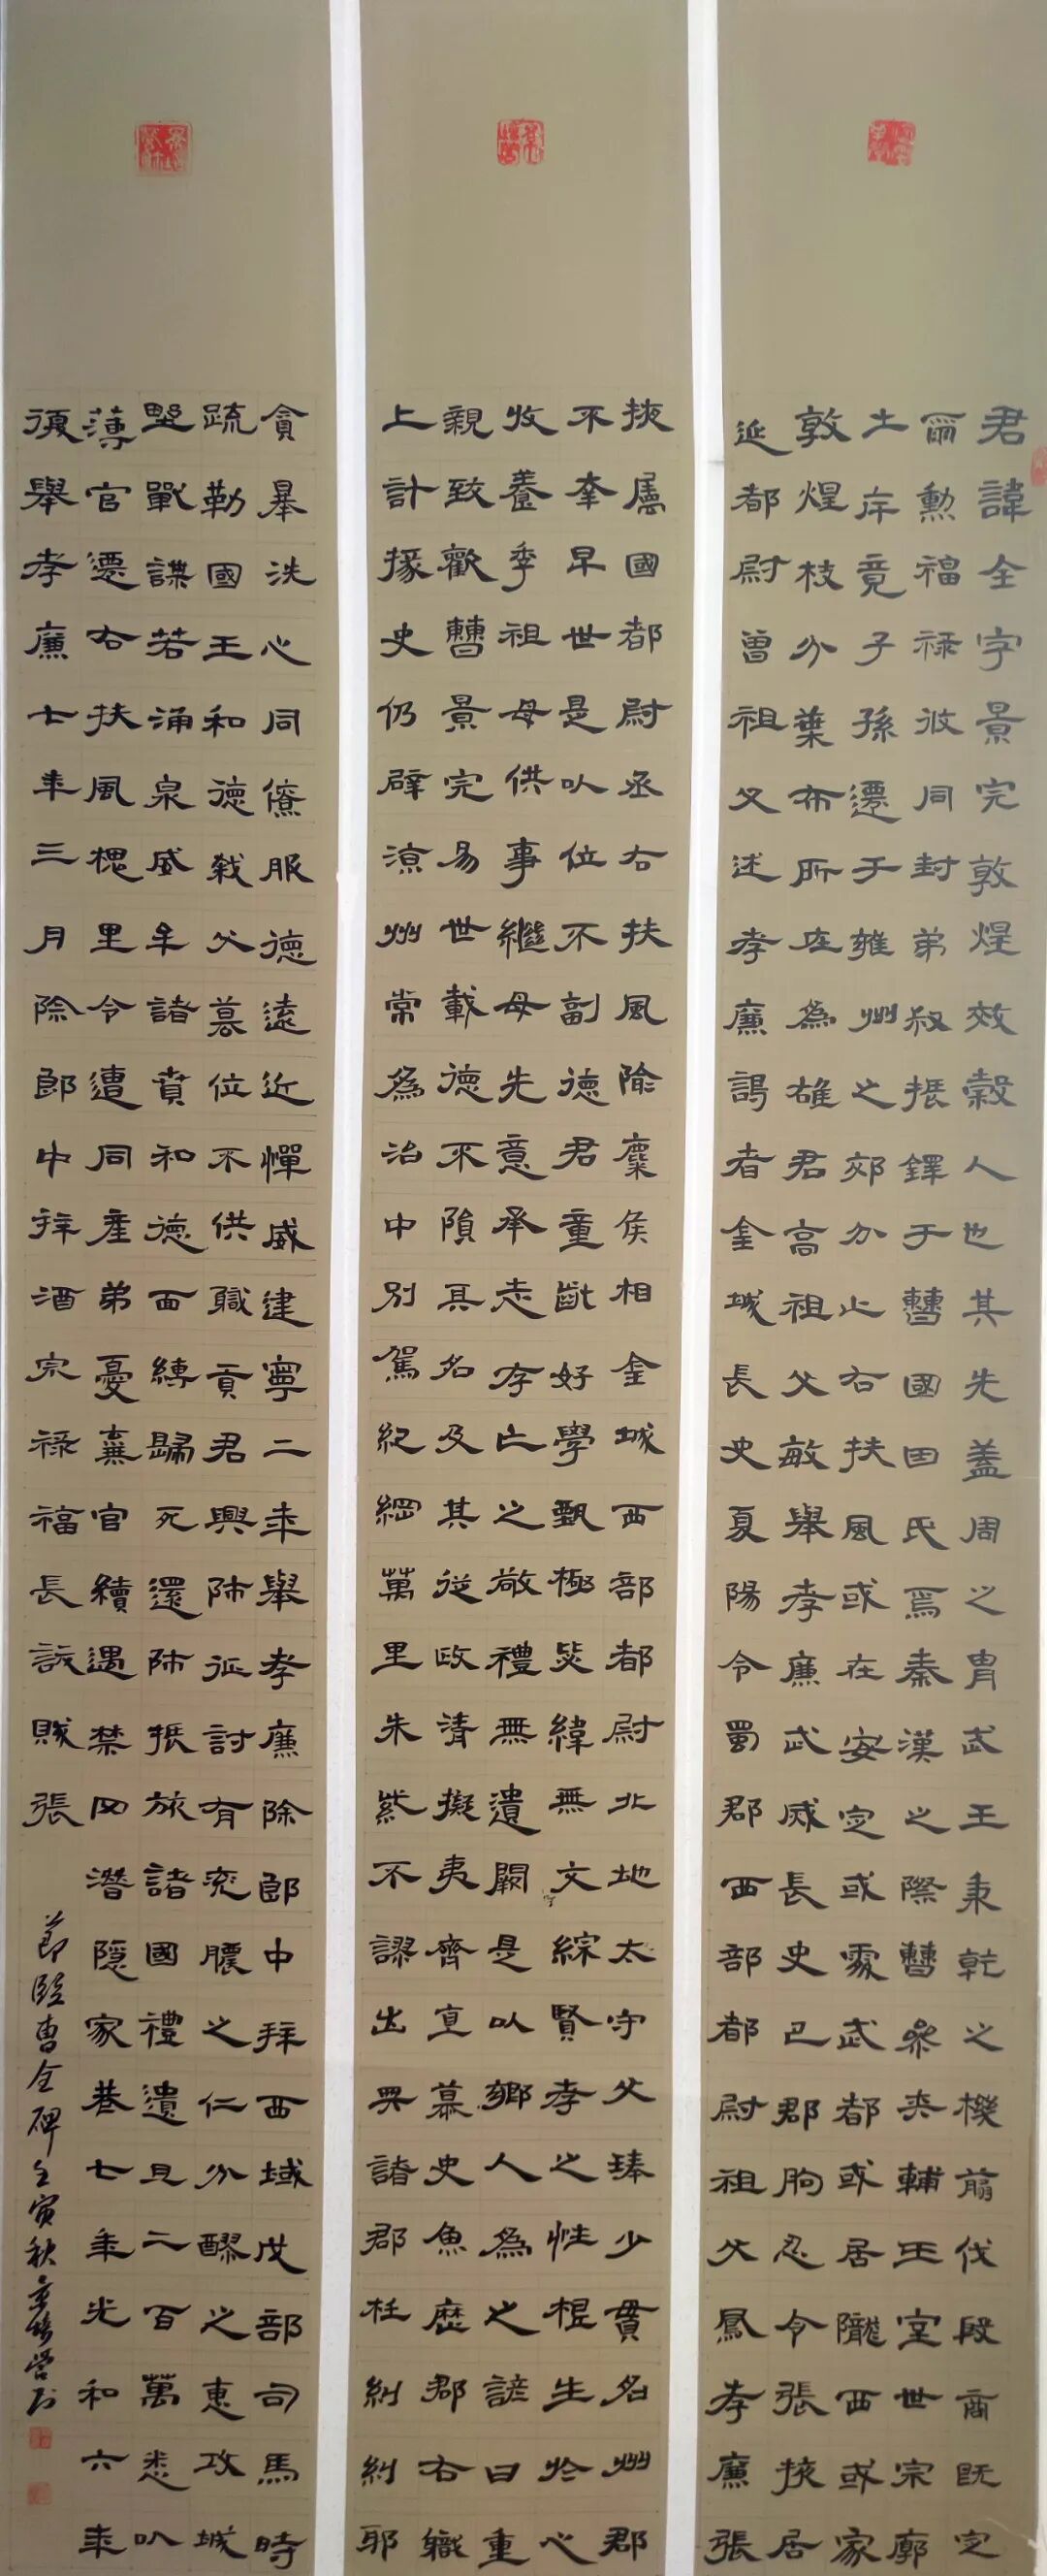 君諱全字景完敦煌效穀人也其先蓋周之胄武王秉乾之機翦伐殷商既定
爾勳福祿攸同封弟叔振鐸于曹國因氏焉秦漢之際曹參夾輔王室世宗廓
土斥竟子孫遷于雍州之郊分止右扶風或在安定或處武都或居隴西或家
敦煌枝分葉布所在為雄君高祖父敏舉孝廉武威長史巴郡朐忍令張掖居
延都尉曾祖父述孝廉謁者金城長史夏陽令蜀郡西部都尉祖父鳳孝廉張
掖屬國都尉丞右扶風隃麋侯相金城西部都尉北地太守父琫少貫名州郡
不幸早世是以位不副德君童齔好學甄極毖緯無文綜賢孝之性根生於心
收養季祖母供事繼母先意承志存亡之敬禮無遺闕是以鄉人為之諺曰重
親致歡曹景完易世載德不隕其名及其從政清擬夷齊直慕史魚歷郡右職
上計掾史仍辟涼州常為治中別駕紀綱萬里朱紫不謬出典諸郡枉糾糾邪
貪暴洗心同僚服德遠近憚威建寧二年舉孝廉除郎中拜西域戊部司馬時
疏勒國王和德弒父篡位不供職貢君興師征討有兗膿之仁分醪之惠攻城
野戰謀若涌泉威牟諸賁和德面縛歸死還師振旅諸國禮遺且二百萬悉以
薄官遷右扶風槐里令遭同產弟憂棄官續遇禁罔潛隱家巷七年光和六年
復舉孝廉七年三月除郎中拜酒泉祿福長訞賊張
節臨曹全碑壬寅秋